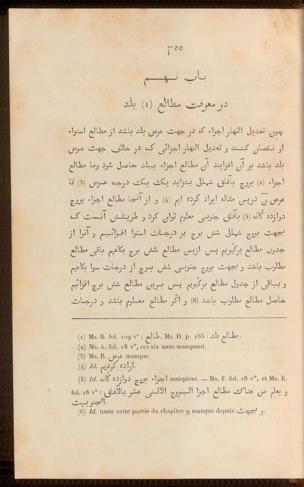 ۳۵۵
باب نهم
در معرفت مطالع (1) بلد
چون تعديل النهار اجزاء كه در جهت عرض بلد باشد از مطالع استواء
او نقصان كنند و تعديل النهار اجزائى كه در خلاف جهت عرض
بلد باشد بر آن افزايند آن مطالع اجزاء ببلد حاصل شود وما مطالع
اجزاء (2) بروج بآفاق شمالى بتزايد يك يك درجه عرض (3) تا
عرض در يس مقاله ايراد كرده ايم (4) و از آنجا مطالع اجزاء بروج
دوازده گانه (5) بآفاق جنوبى معلوم توان كرد و طريقش آنست كه
بجهت بروج شمالى شش برج بر درجات استوا افزائيم و آنرا از
جدول مطالع برگيريم پس ازيس مطالع شش برج بكاهيم باقى مطالع
مطلوب باشد و بجهت بروج جنوبى شش برج از درجات سوا بكاهيم
و بباقى از جدول مطالع برگيريم پس بريس مطالع شش برج افزائيم
حاصل مطالع مطلوب باشد (6) و اگر مطالع معلوم باشد و درجات
(1) Ms. B. fol. 109 v° : طالع. Ms. D, p. 165 : مطالع بلد.
(2) Ms. A, fol. 18 v°, ces six mots manquent.
(3) Ms. B, عرض manque.
(4) Id. اراده كرديم.
(5) Id. اجزاء بروج دوازده گانه manquent. — Ms. F. fol. 18 v°, et Ms. E.
fol. 18 v° : و يعلم من هناك مطالع اجزا البروج الاثنى عشر بالآفاق
الجنوبيت.
(6) Id. toute cette partie du chapitre 9 manque depuis و بجهت.